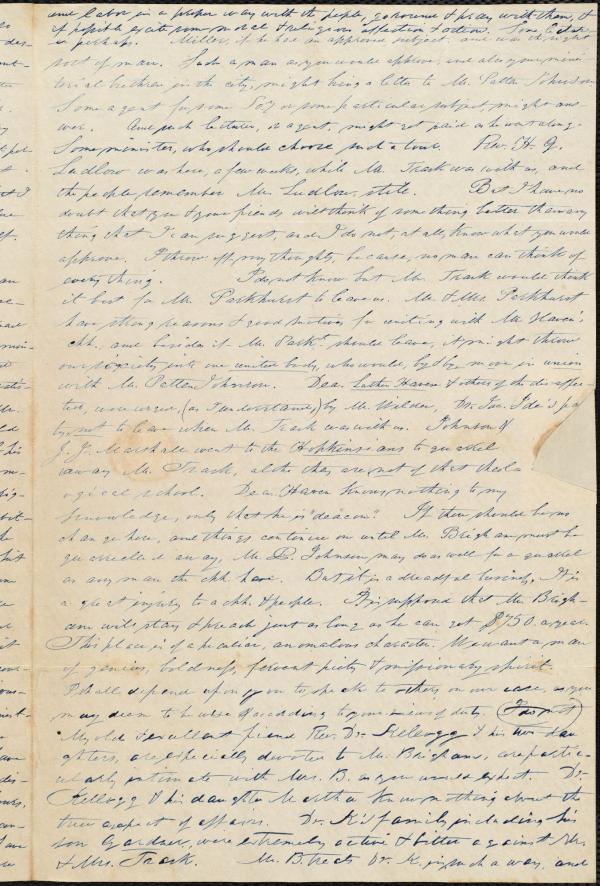 and labor in a proper way with the people, go round & pray with them, &
if possible excite some moral & religious affection & action. Some
perhaps. Miller, if he has an approved subject, and was the right
sort of man. Such a man as you would approve, and also your minis-
terial brethren in the city, might bring a letter to Mr. Patten Johnson.
Some agent for some Soy or some particular subject, might ans-
wer. And such lecturer, or agent, might get paid as he went along.
Some minister, who should choose such a tour. Rev. H. G.
Ludlow was here, a few weeks, while Mr. Track was with us, and
the people remember Mr. Ludlow, still. But I have no
doubt that you & your friends will think of something better than any
thing that I can suggest, and I do not, at all, know what you would
approve. I throw off my thoughts, because, no man can think of
every thing. I do not know but Mr. Track would think
it best for Mr Parkhurst to leave us. Mr & Mrs. Parkhurst
have strong reasons & good motives for uniting with Mr Haven's
chh., and besides if Mr. Parkt. should leave, it might throw
our society into one united body, who would, by & by move in union
with Mr. Patten Johnson. Dea. Luther Haven & others of the disaffec-
ted, were urged, (as I understand,) by Mr. Wilder, Dr. Jas.
by, not to leave when Mr. Track was with us. Johnson &
J. J. Marshall went to the Hopkinsians to quarrel
away Mr. Track, altho they are not of that theol-
ogical school. Dea. Haven knows nothing to my
knowledge, only that he is "deacon." If there should be no
change here, and things continue on until Mr. Brigham must be
quarrelled away, Mr P. Johnson may do as well for a quarrel
as any man the chh. have. But it is a dreadful business, It is
a great injury to a chh. & people. It is supposed that Mr. Brigh-
am will stay & preach just as long as he can get $750. a year.
This place is of a peculiar, anomalous character. We want a man
of genius, boldness, fervent piety & missionary spirit.
I shall depend upon you to speak to others on our case, as you
may deem to be wise & according to your views of duty. I do not
My old & excellent friend Rev. Dr. Kellogg & his two dau-
ghters, are especially devoted to Mr. Brighams, are partic-
ularly intimate with Mrs. B. as you would expect. Dr.
Kellogg & his daughter Martha know nothing about the
true aspect of affairs. Dr. K's family, including his
son Gardner, were extremely active & bitter against Mr.
& Mrs. Track. Mr. B. treats Dr. K. in such a way, and